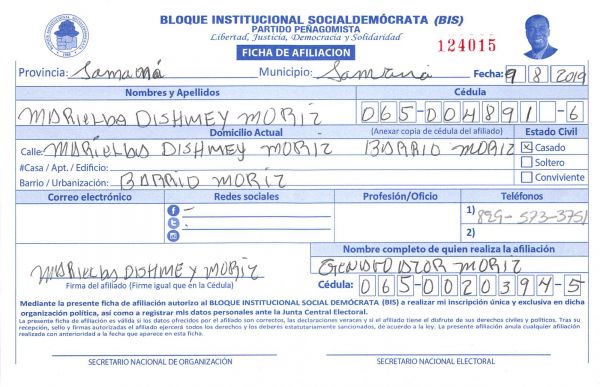 BLOQUE INSTITUCIONAL SOCIALDEMÓCRATA (BIS)
PARTIDO PEÑAGOMISTA
Libertad, Justicia, Democracia y Solidaridad
FICHA DE AFILIACION
124015
Provincia: Samaná Municipio: Samaná Fecha: 9 8 2019
Nombres y Apellidos Cédula
MARIELBA DISHMEY MORIZ 065-0048911-6
Domicilio Actual (Anexar copia de cédula del afiliado) Estado Civil
Calle: MARIELBA DISHMEY MORIZ BARRIO MORIZ
☒ Casado
#Casa / Apt. / Edificio:
Soltero
Barrio / Urbanización: BARRIO MORIZ
Conviviente
Correo electrónico Redes sociales Profesión/Oficio Teléfonos
1) 829-573-3751
2)
Nombre completo de quien realiza la afiliación
MARIELBA DISHMEY MORIZ MORIZ
Firma del afiliado (Firme igual que en la Cédula) Cédula: 065-0020394-5
Mediante la presente ficha de afiliación autorizo al BLOQUE INSTITUCIONAL SOCIAL DEMÓCRATA (BIS) a realizar mi inscripción única y exclusiva en dicha
organización política, así como a registrar mis datos personales ante la Junta Central Electoral.
La presente ficha de afiliación es válida si los datos ofrecidos por el afiliado son correctos, las declaraciones veraces y si el afiliado tiene el disfrute de sus derechos civiles y políticos. Tras su
recepción, sello y firmas autorizadas el afiliado ejercerá todos los derechos y los deberes estatutariamente sancionados, de acuerdo a la ley. La presente afiliación anula cualquier afiliación
realizada con anterioridad a la fecha que aparece en esta ficha.
SECRETARIO NACIONAL DE ORGANIZACIÓN SECRETARIO NACIONAL ELECTORAL